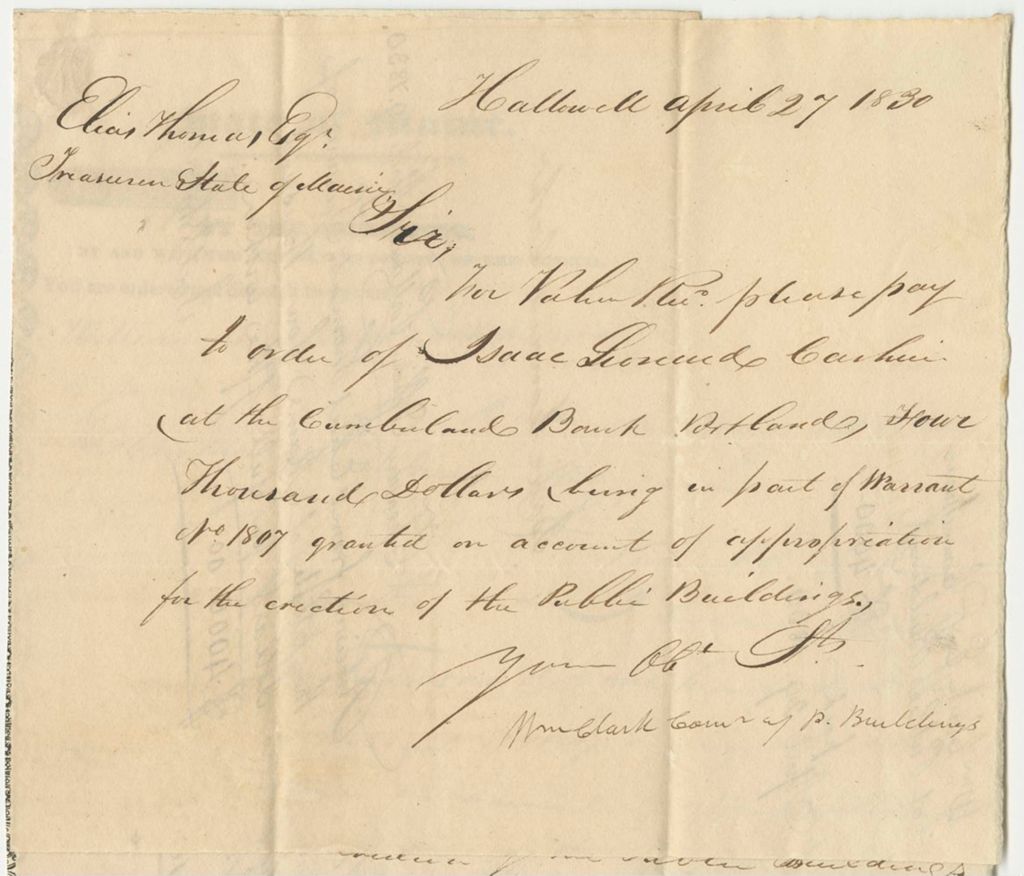 Hallowell april 27 1830
Elias Thomas, Esqr.
Treasurer State of Maine
Sir,
For Value Recd. please pay
to order of Isaac Leonard Cashier
at the Cumberland Bank Portland, Four
Thousand Dollars being in part of Warrant
No. 1807 granted on account of appropriation
for the erection of the Public Buildings,
Your Obt St.
Wm Clark Comr of P. Buildings
Buildings